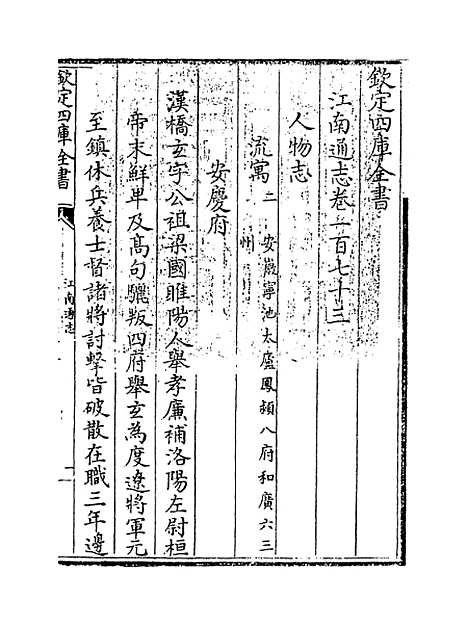 欽定四庫全書
江南通志卷一百七十三
人物志
流寓二 安徽寧池太廬鳳潁八府和廣六三
州
安慶府
漢橋玄字公祖梁國睢陽人舉孝廉補洛陽左尉桓
帝末鮮卑及高句驪叛四府舉玄為度遼將軍元
至鎮休兵養士督諸將討擊皆破散在職三年邊
欽定四庫全書
江南通志